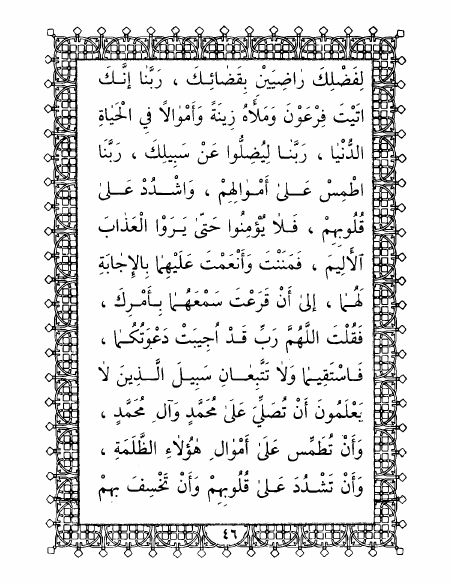 لِفَضْلِكَ رَاضِيَيْنِ بِقَضَائِكَ ، رَبَّنَا إِنَّكَ
اتَيْتَ فِرْعَوْنَ وَمَلَأَهُ زِينَةً وَأَمْوَالًا فِي الْحَيَاةِ
الدُّنْيَا ، رَبَّنَا لِيُضِلُّوا عَنْ سَبِيلِكَ ، رَبَّنَا
اطْمِسْ عَلىٰ أَمْوَالِهِمْ ، وَاشْدُدْ عَلىٰ
قُلُوبِهِمْ ، فَلَا يُؤْمِنُوا حَتّىٰ يَرَوْا الْعَذَابَ
الْأَلِيمَ ، فَمَنَنْتَ وَأَنْعَمْتَ عَلَيْهِمَا بِالْإِجَابَةِ
لَهُمَا ، إِلىٰ أَنْ قَرَعْتَ سَمْعَهُمَا بِأَمْرِكَ ،
فَقُلْتَ اللَّهُمَّ رَبِّ قَدْ أُجِيبَتْ دَعْوَتُكُمَا ،
فَاسْتَقِيمَا وَلَا تَتَّبِعَانِ سَبِيلَ الَّذِينَ لَا
يَعْلَمُونَ أَنْ تُصَلِّيَ عَلىٰ مُحَمَّدٍ وَآلِ مُحَمَّدٍ ،
وَأَنْ تُطَمِّسَ عَلىٰ أَمْوَالِ هٰؤُلَاءِ الظَّلَمَةِ ،
وَأَنْ تَشْدُدَ عَلىٰ قُلُوبِهِمْ وَأَنْ تَخْسِفَ بِهِمْ
٤٦